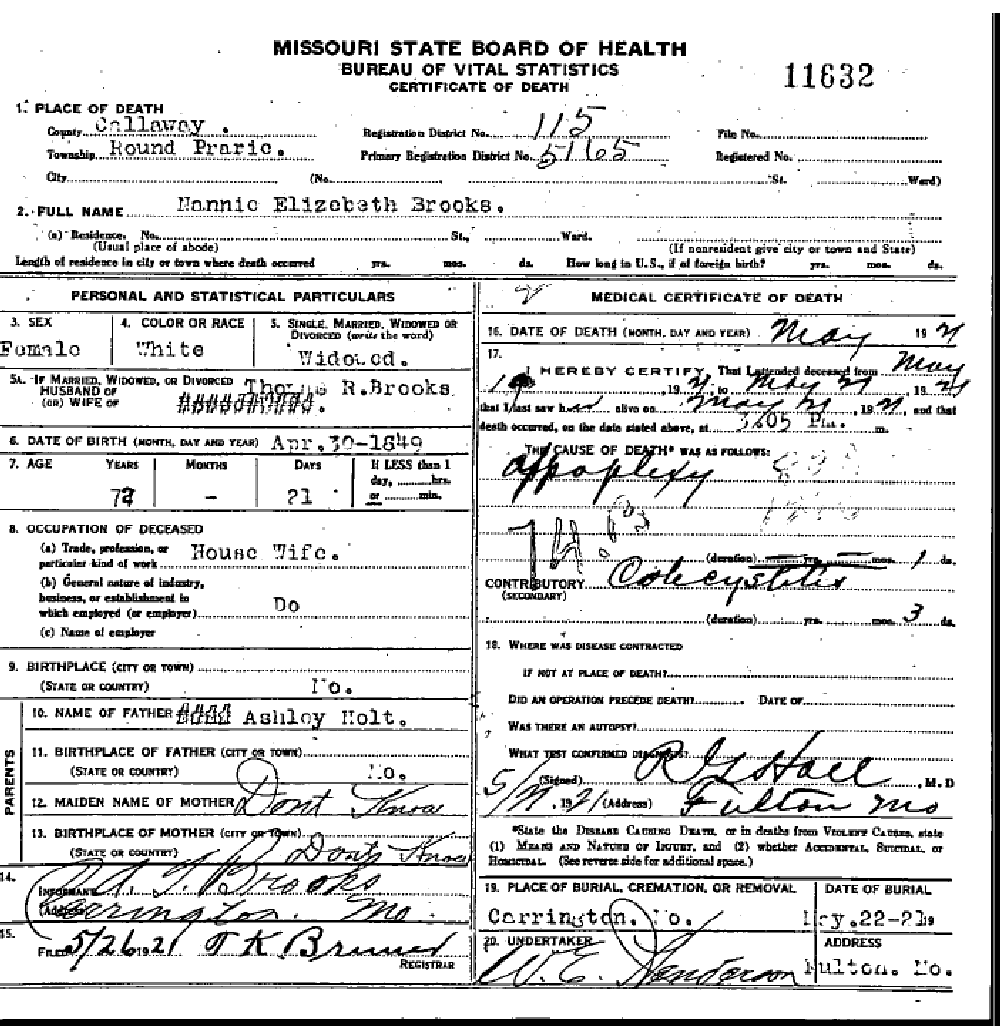 MISSOURI STATE BOARD OF HEALTH
BUREAU OF VITAL STATISTICS
CERTIFICATE OF DEATH
11632
1. PLACE OF DEATH
County Callaway . Registration District No. 115 File No.
Township Round Praric. Primary Registration District No. 5165 Registered No.
City (No. St. Ward)
2. FULL NAME Nannie Elizebeth Brooks.
(a) Residence. No. St., Ward.
(Usual place of abode) (If nonresident give city or town and State)
Length of residence in city or town where death occurred yrs. mos. ds. How long in U.S., if of foreign birth? yrs. mos. ds.
PERSONAL AND STATISTICAL PARTICULARS
3. SEX 4. COLOR OR RACE 5. SINGLE, MARRIED, WIDOWED OR
DIVORCED (write the word)
Female White Widowed.
5A. IF MARRIED, WIDOWED, OR DIVORCED
HUSBAND OF Thomas R.Brooks
(OR) WIFE OF
6. DATE OF BIRTH (MONTH, DAY AND YEAR) Apr.30-1849
7. AGE YEARS MONTHS DAYS If LESS than 1
day, hrs.
72 - 21 or min.
8. OCCUPATION OF DECEASED
(a) Trade, profession, or
particular kind of work House Wife.
(b) General nature of industry,
business, or establishment in
which employed (or employer) Do
(c) Name of employer
9. BIRTHPLACE (CITY OR TOWN)
(STATE OR COUNTRY) Mo.
PARENTS
10. NAME OF FATHER Ashley Holt.
11. BIRTHPLACE OF FATHER (CITY OR TOWN)
(STATE OR COUNTRY) Mo.
12. MAIDEN NAME OF MOTHER Dont Know
13. BIRTHPLACE OF MOTHER (CITY OR TOWN)
(STATE OR COUNTRY) Dont Know
14.
INFORMANT Brooks
(Address) Carrington. Mo.
15.
FILED 5/26 1921 T K Bruner
REGISTRAR
MEDICAL CERTIFICATE OF DEATH
16. DATE OF DEATH (MONTH, DAY AND YEAR) May 19 21
17.
I HEREBY CERTIFY, That I attended deceased from May
19 21 to May 21 19 21
that I last saw her alive on May 21, 19 21, and that
death occurred, on the date stated above, at Pm. m.
THE CAUSE OF DEATH* WAS AS FOLLOWS:
Appoplexy
(duration) yrs. mos. 1 ds.
CONTRIBUTORY Colecystitis
(SECONDARY)
(duration) yrs. mos. 3 ds.
18. WHERE WAS DISEASE CONTRACTED
IF NOT AT PLACE OF DEATH?
DID AN OPERATION PRECEDE DEATH? DATE OF
WAS THERE AN AUTOPSY?
WHAT TEST CONFIRMED DIAGNOSIS?
(Signed) M. D
5/ 1921 (Address) Fulton Mo
*State the DISEASE CAUSING DEATH, or in deaths from VIOLENT CAUSES, state
(1) MEANS AND NATURE OF INJURY, and (2) whether ACCIDENTAL, SUICIDAL, or
HOMICIDAL. (See reverse side for additional space.)
19. PLACE OF BURIAL, CREMATION, OR REMOVAL DATE OF BURIAL
Carrington. Mo. May.22-21 19
20. UNDERTAKER ADDRESS
W. E. Henderson Fulton. Mo.